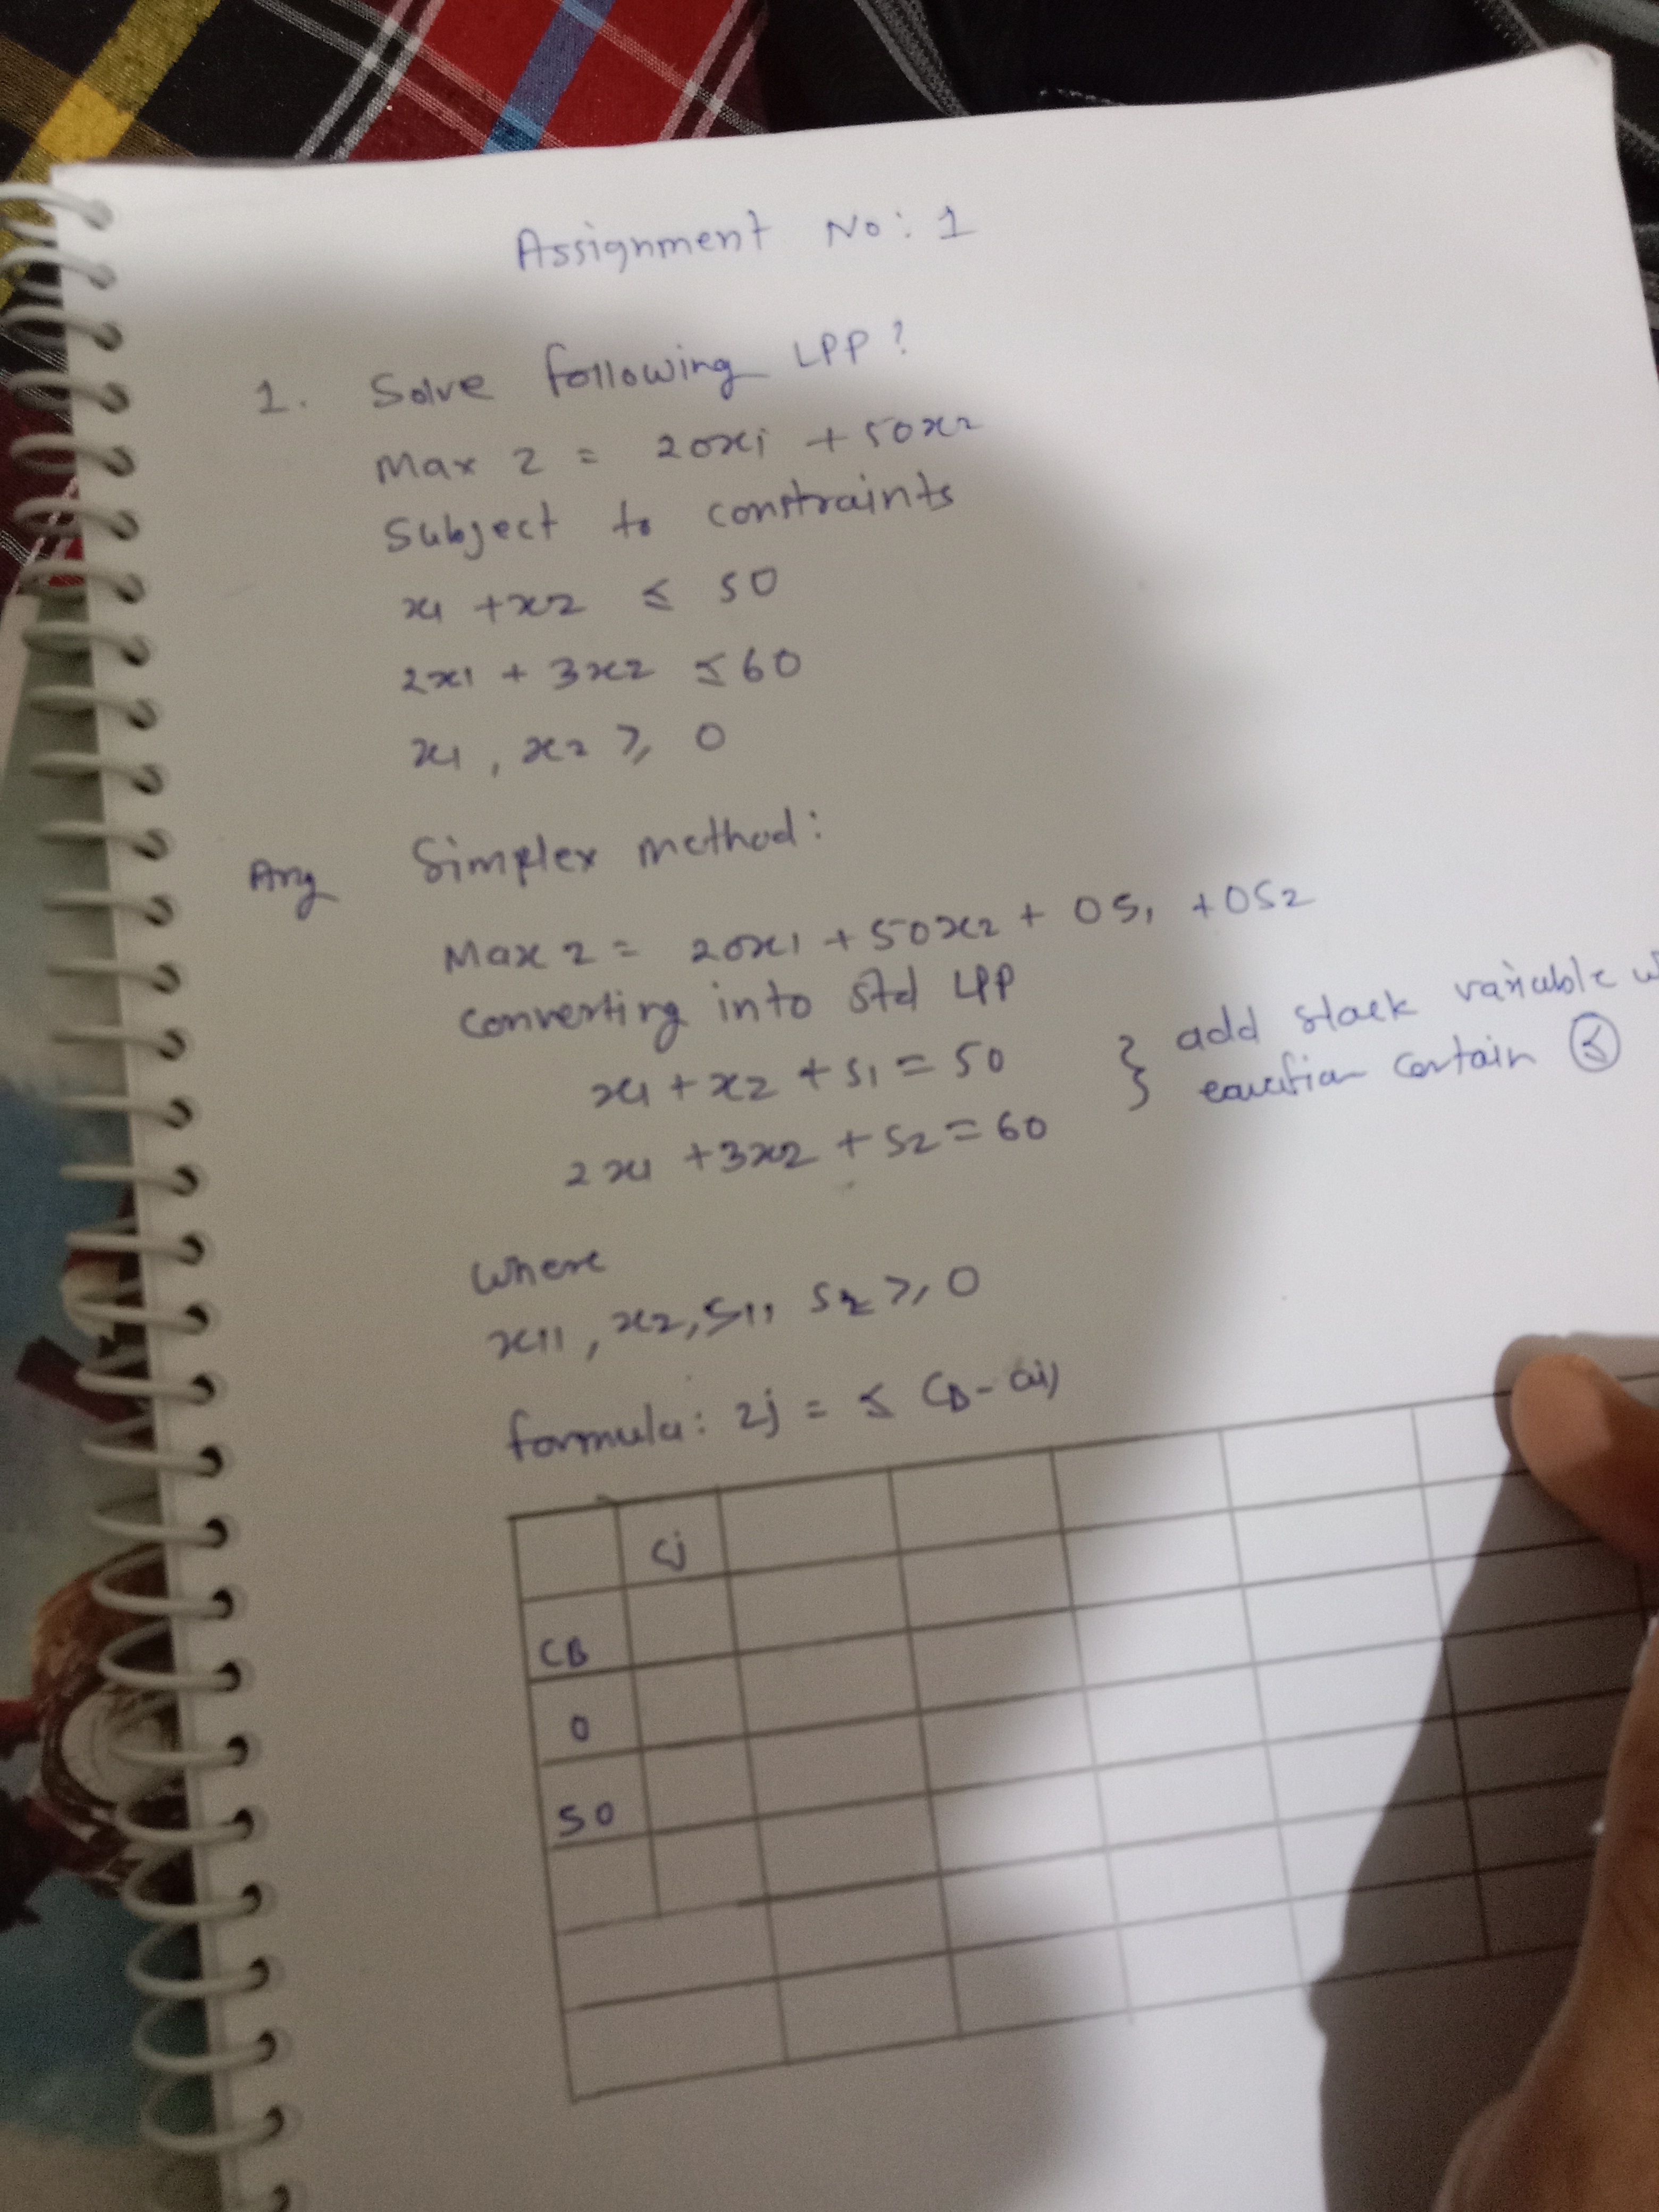 Assignment No: 1
1. Solve following LPP?
Max Z = 20x1 + 50x2
Subject to constraints
x1 + x2 ≤ 50
2x1 + 3x2 ≤ 60
x1, x2 ≥ 0
Ans Simplex method:
Max Z = 20x1 + 50x2 + 0S1 + 0S2
Converting into Std LPP
x1 + x2 + S1 = 50 } add slack variable
2x1 + 3x2 + S2 = 60 contain ≤
where
x1, x2, S1, S2 ≥ 0
formula: Zj = ≤ CB - aij
Cj
CB
0
50